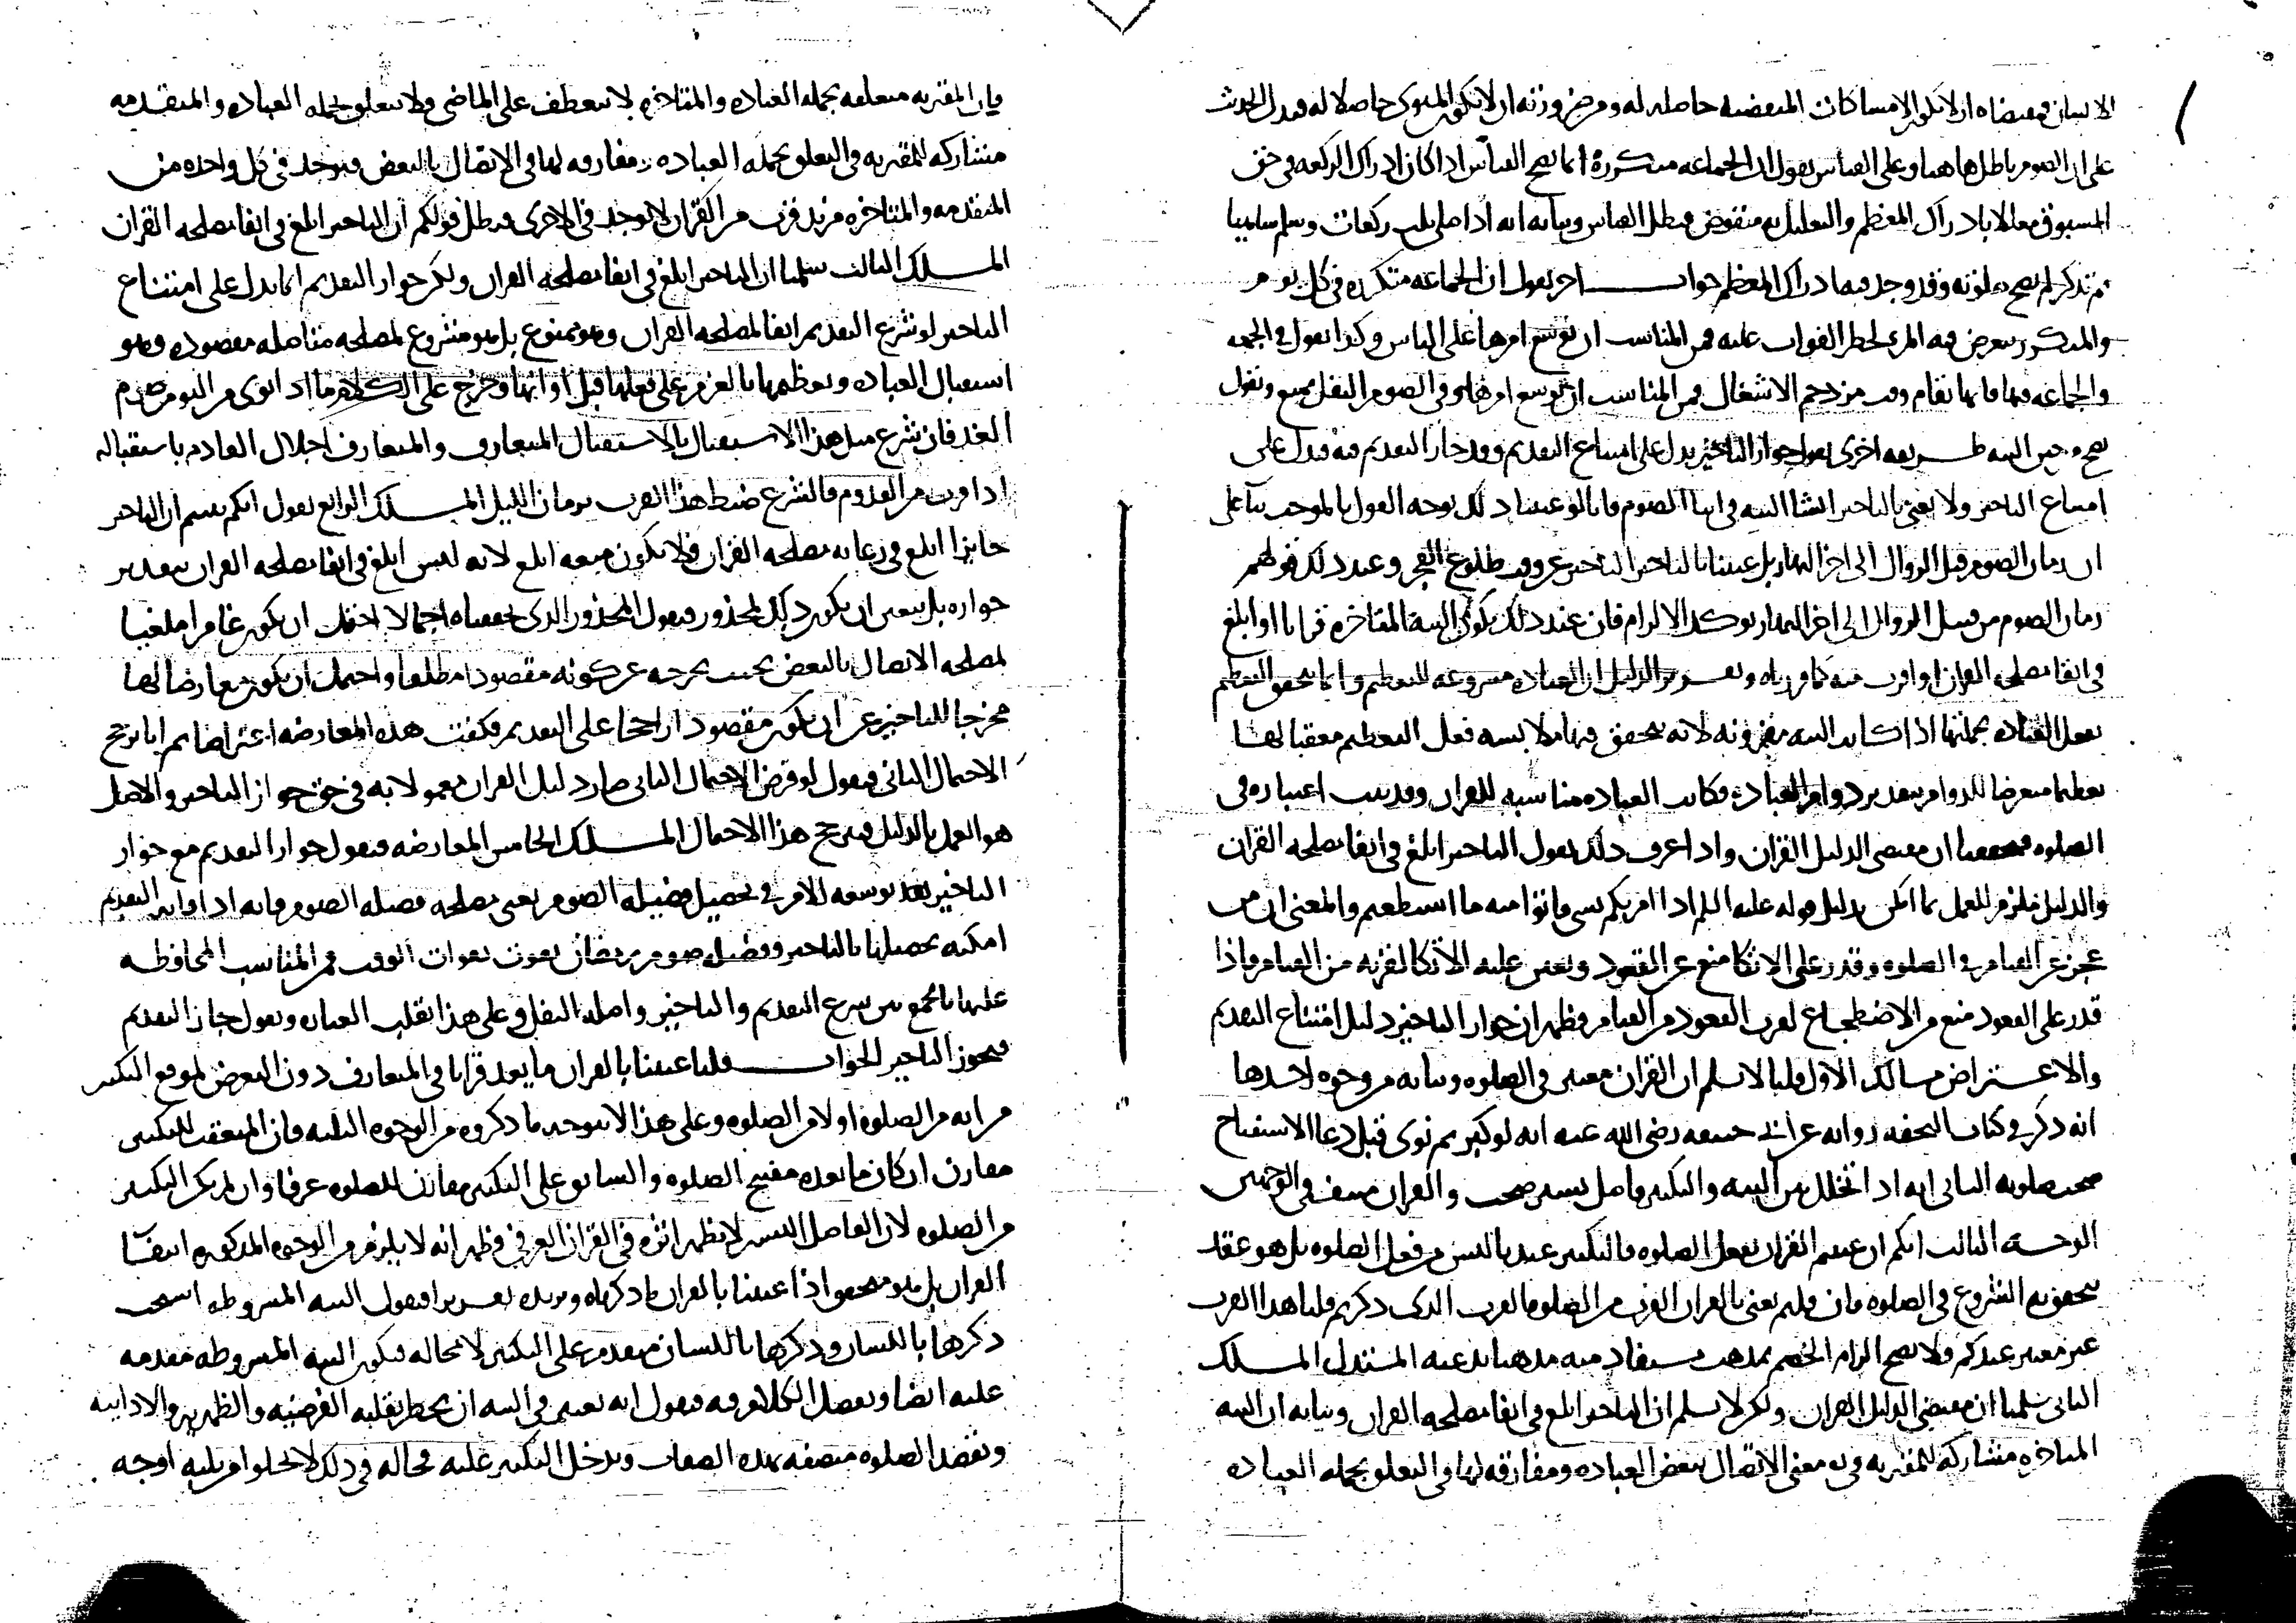 الانسان مقتضاه ان لا تكون الامساكات المنقضية حاصلة له ومن ضرورته ان لا يكون المنوى حاصلا له فيدل الحديث
على ان الصوم باطل هاهنا وعلى القياس نقول ان الجماعة متكررة انما يصح القياس اذا كان ادراك الركعة في حق
المسبوق معللا بادراك المعظم والتعليل به منقوض فبطل القياس وبيانه انه اذا صلى ثلث ركعات وسلم ساهيا
ثم تذكر لم تصح صلوته وقد وجد فيها ادراك المعظم جواب اخر نقول ان الجماعة متكررة في كل يوم
والمتكرر يتعرض فيه المرء لخطر الفوات عليه فمن المناسب ان توسع امرها على الناس وكذا نقول في الجمعة
والجماعة فيها فانها تقام وقت مزدحم الاشغال فمن المناسب ان توسع امرها وفي الصوم النفل نمنع ونقول
يصح من حين النية طريقه اخرى نقول جواز التاخير يدل على امتناع التقديم وقد جاز التقديم فيه فدل على
امتناع التاخير ولا يعنى بالتاخير انشا النية في اثنا الصوم فانا لو عنينا ذلك توجه القول بالموجب بنا على
ان زمان الصوم قبل الزوال الى اخر النهار بل عنينا بالتاخير التاخير عن وقت طلوع الفجر وعند ذلك قولهم
زمان الصوم من قبل الزوال الى اخر النهار توكد الالزام فان عند ذلك تكون النية المتاخرة قرانا او ابلغ
في ايفا مصلحة القران او اقرب منه كما قررناه وتقرير الدليل ان العبادة مشروعة للتعظيم وانما يتحقق التعظيم
بفعل العبادة بجملتها اذا كانت النية مقرونة لانه يتحقق فيها ملابسه فعل التعظيم معقبا لها
تعظيما متعرضا للدوام بتقدير دوام العبادة فكانت العبادة مناسبه للقران وقد ثبت اعتباره في
الصلوة فتحققنا ان مقتضى الدليل القران واذا عرف ذلك نقول التاخير ابلغ في ايفا مصلحة القران
والدليل يلزم العمل بما امكن بدليل قوله عليه السلم اذا امرتكم بشى فاتوا منه ما استطعتم والمعنى ان من
عجز عن القيام في الصلوة وقدر على الاتكا منع عن القعود وتعين عليه الاتكا لقربه من القيام واذا
قدر على القعود منع من الاضطجاع لقرب القعود من القيام فظهر ان جواز التاخير دليل امتناع التقديم
والاعتراض مسالك الاول قلنا لا نسلم ان القران معتبر في الصلوة وبيانه من وجوه احدها
انه ذكر في كتاب التحفه رواية عن ابي حنيفة رضي الله عنه انه لو كبر ثم نوى قبل دعا الاستفتاح
صحت صلوته الثاني انه اذا تخلل بين النية والتكبير فاصل يسير صحت والقران منتف في الوجهين
الوجه الثالث انكم ان عنيتم القران بفعل الصلوة فالتكبير عندنا ليس من فعل الصلوة بل هو عقد
يتحقق به الشروع في الصلوة فان قلتم نعنى بالقران القرب من الصلوة فالقرب الذى ذكرتم قلنا هذا القرب
غير معتبر عندكم ولا يصح الزام الخصم بمذهب مستفاد منه مذهبا يدعيه المستدل المسلك
الثاني سلمنا ان مقتضى الدليل القران ولكن لا نسلم ان التاخير ابلغ في ايفا مصلحة القران وبيانه ان النية
المتاخرة مشاركة للمقترنه في معنى الاتصال ببعض العبادة ومفارقه لها في التعلق بجملة العبادة
فان المقترنه متعلقه بجملة العبادة والمتاخره لا تنعطف على الماضى ولا تتعلق بجملة العبادة والمتقدمه
مشاركه للمقترنه في التعلق بجملة العبادة ومفارقه لها في الاتصال بالبعض فيوجد في كل واحده من
المتقدمه والمتاخره مزيد قرب من القران لا يوجد في الاخرى فبطل قولكم ان التاخير ابلغ في ايفا مصلحة القران
المسلك الثالث سلمنا ان التاخير ابلغ في ايفا مصلحة القران ولكن جواز التقديم انما يدل على امتناع
التاخير لو شرع التقديم ايفا لمصلحة القران وهو ممنوع بل هو مشروع لمصلحه متاصله مقصوده وهو
استقبال العبادة وتعظيمها بالعزم على فعلها قبل اوانها وخرج على الكلام ما اذا نوى من اليوم صوم
الغد فان شرع مثل هذا الاستقبال بالاستقبال المتعارف والمتعارف اجلال القادم باستقباله
اذا قرب من القدوم فالشرع ضبط هذا القرب بزمان الليل المسلك الرابع نقول انكم نفيتم ان التاخير
جايزا ابلغ في رعاية مصلحة القران فلا يكون منعه ابلغ لانه ليس ابلغ في ايفا مصلحة القران بتقدير
جوازه بل يتعين ان يكون ذلك لمحذور فنقول المحذور الذى تحققناه اجمالا احتمل ان يكون غامرا ملغيا
لمصلحة الاتصال بالبعض بحيث يخرجه عن كونه مقصودا مطلقا واحتمل ان يكون معارضا لها
مخرجا للتاخير عن ان يكون مقصودا راجحا على التقديم فكفت هذه المعارضه اعتراضا ثم انا نرجح
الاحتمال الثانى فنقول لو فرض الاحتمال الثانى صار دليل القران معمولا به في حق جواز التاخير والاصل
هو العمل بالدليل فيترجح هذا الاحتمال المسلك الخامس المعارضه فنقول جواز التقديم مع جواز
التاخير يفيد توسعه للامر في تحصيل فضيلة الصوم نعنى مصلحه فضيله الصوم فانه اذا فاته التقديم
امكنه تحصيلها بالتاخير وفضيلة صوم رمضان تفوت بفوات الوقت فمن المناسب المحافظة
عليها بالجمع بين شرع التقديم والتاخير واصله النفل وعلى هذا نقلب العبارة ونقول جاز التقديم
فيجوز التاخير الجواب قلنا عنينا بالقران ما يعد قرانا في المتعارف دون التعرض لموقع التكبير
من انه من الصلوة او لا من الصلوة وعلى هذا لا يتوجه ما ذكروه من الوجوه الثلثه فان المتعقب للتكبير
مقارن ان كان ما بعده مفتتح الصلوة والسابق على التكبير مقارن للصلوة عرفا وان لم يكن التكبير
من الصلوة لان الفاصل اليسير لا يظهر اثره في القران العرفي فظهر انه لا يلزم من الوجوه المذكورة انتفا
القران بل هو متحقق اذا عنينا بالقران ما ذكرناه ونزيده تقريرا فنقول النية المشروطه استحب
ذكرها باللسان وذكرها باللسان متقدم على التكبير لا محاله فتكون النيه المشروطه متقدمه
عليه ايضا وتفصل الكلام فيه فنقول انه يعتبر في النيه ان يخطر بقلبه الفرضيه والظهريه والادائيه
ويقصد الصلوة متصفه بهذه الصفات ويدخل التكبير عليه فحاله في ذلك لا تخلوا من ثلثه اوجه